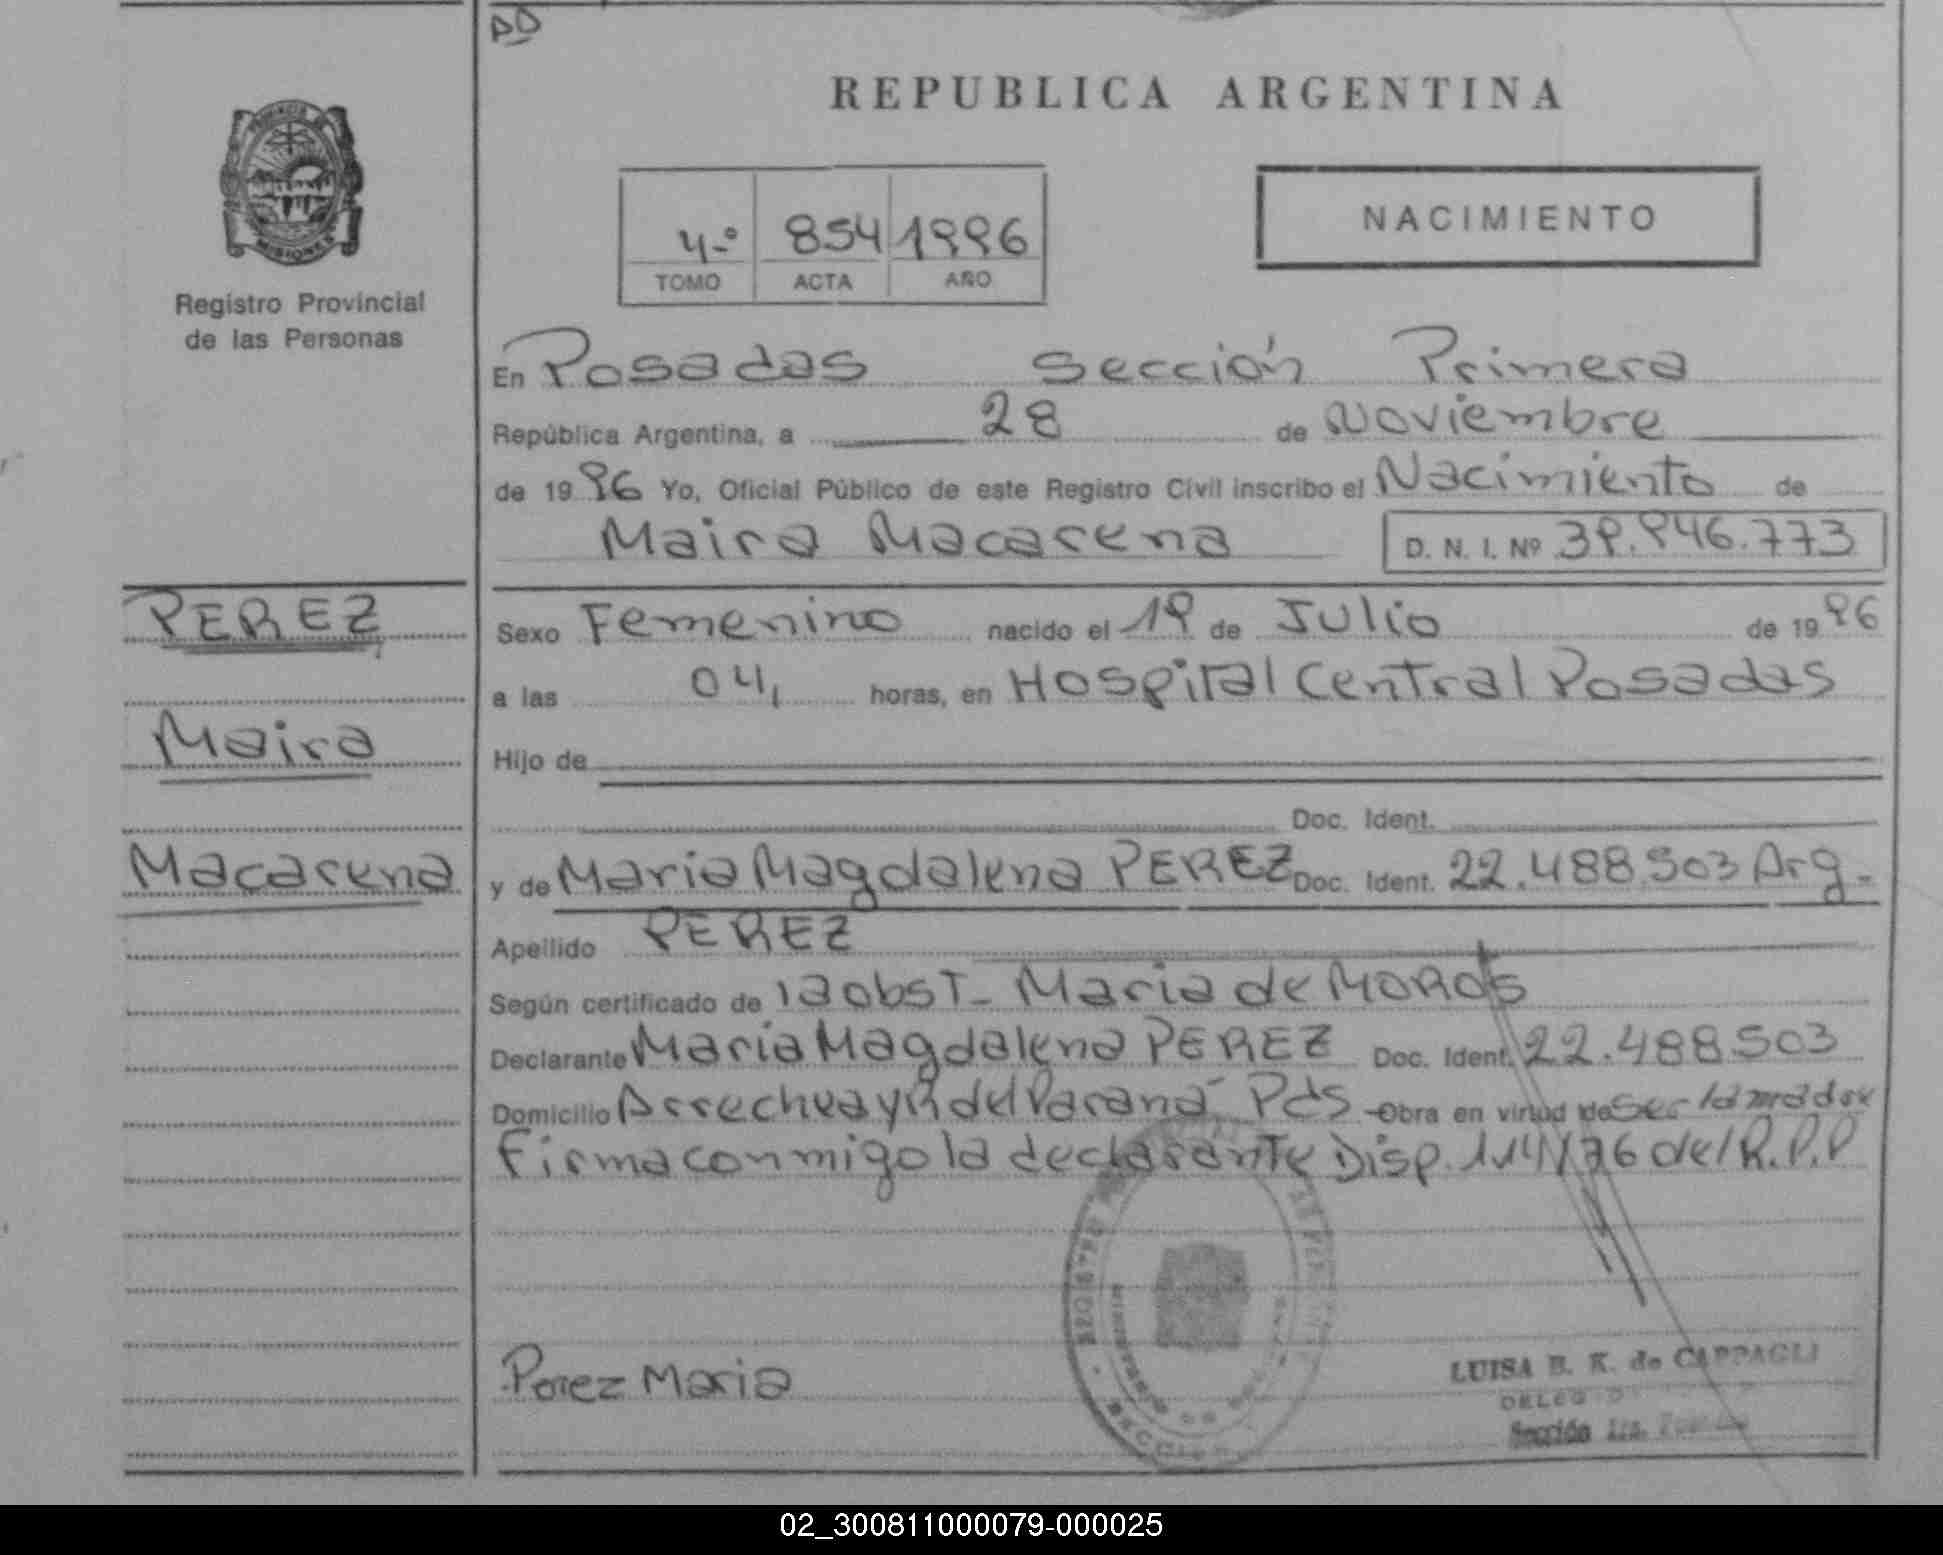 DD
REPUBLICA ARGENTINA
PROVINCIA DE
MISIONES
Registro Provincial
de las Personas
4º 854 1996
TOMO ACTA AÑO
NACIMIENTO
En Posadas Sección Primera
República Argentina, a 28 de Noviembre
de 1996 Yo, Oficial Público de este Registro Civil inscribo el Nacimiento de
Maira Macarena D. N. I. Nº 39.946.773
PEREZ
Maira
Macarena
Sexo Femenino nacido el 19 de Julio de 1996
a las 04, horas, en Hospital Central Posadas
Hijo de
Doc. Ident.
y de Maria Magdalena PEREZ Doc. Ident. 22.488.503 Arg.
Apellido PEREZ
Según certificado de la obst. Maria de MOROS
Declarante Maria Magdalena PEREZ Doc. Ident. 22.488.503
Domicilio Arrechea y R del Paraná Pds - Obra en virtud de ser la madre
Firma conmigo la declarante Disp. 114/76 del R.P.P
Perez Maria
LUISA B. K. de CAPPAGLI
Sección 1ra.
02_300811000079-000025